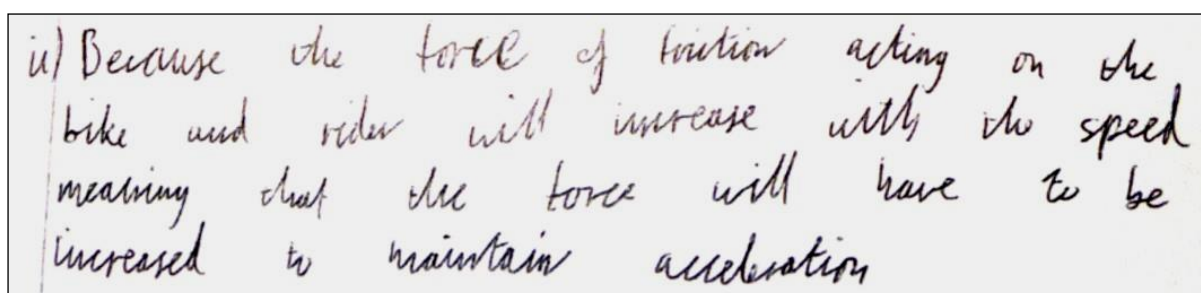 ii) Because the force of friction acting on the
bike and rider will increase with the speed
meaning that the force will have to be
increased to maintain acceleration